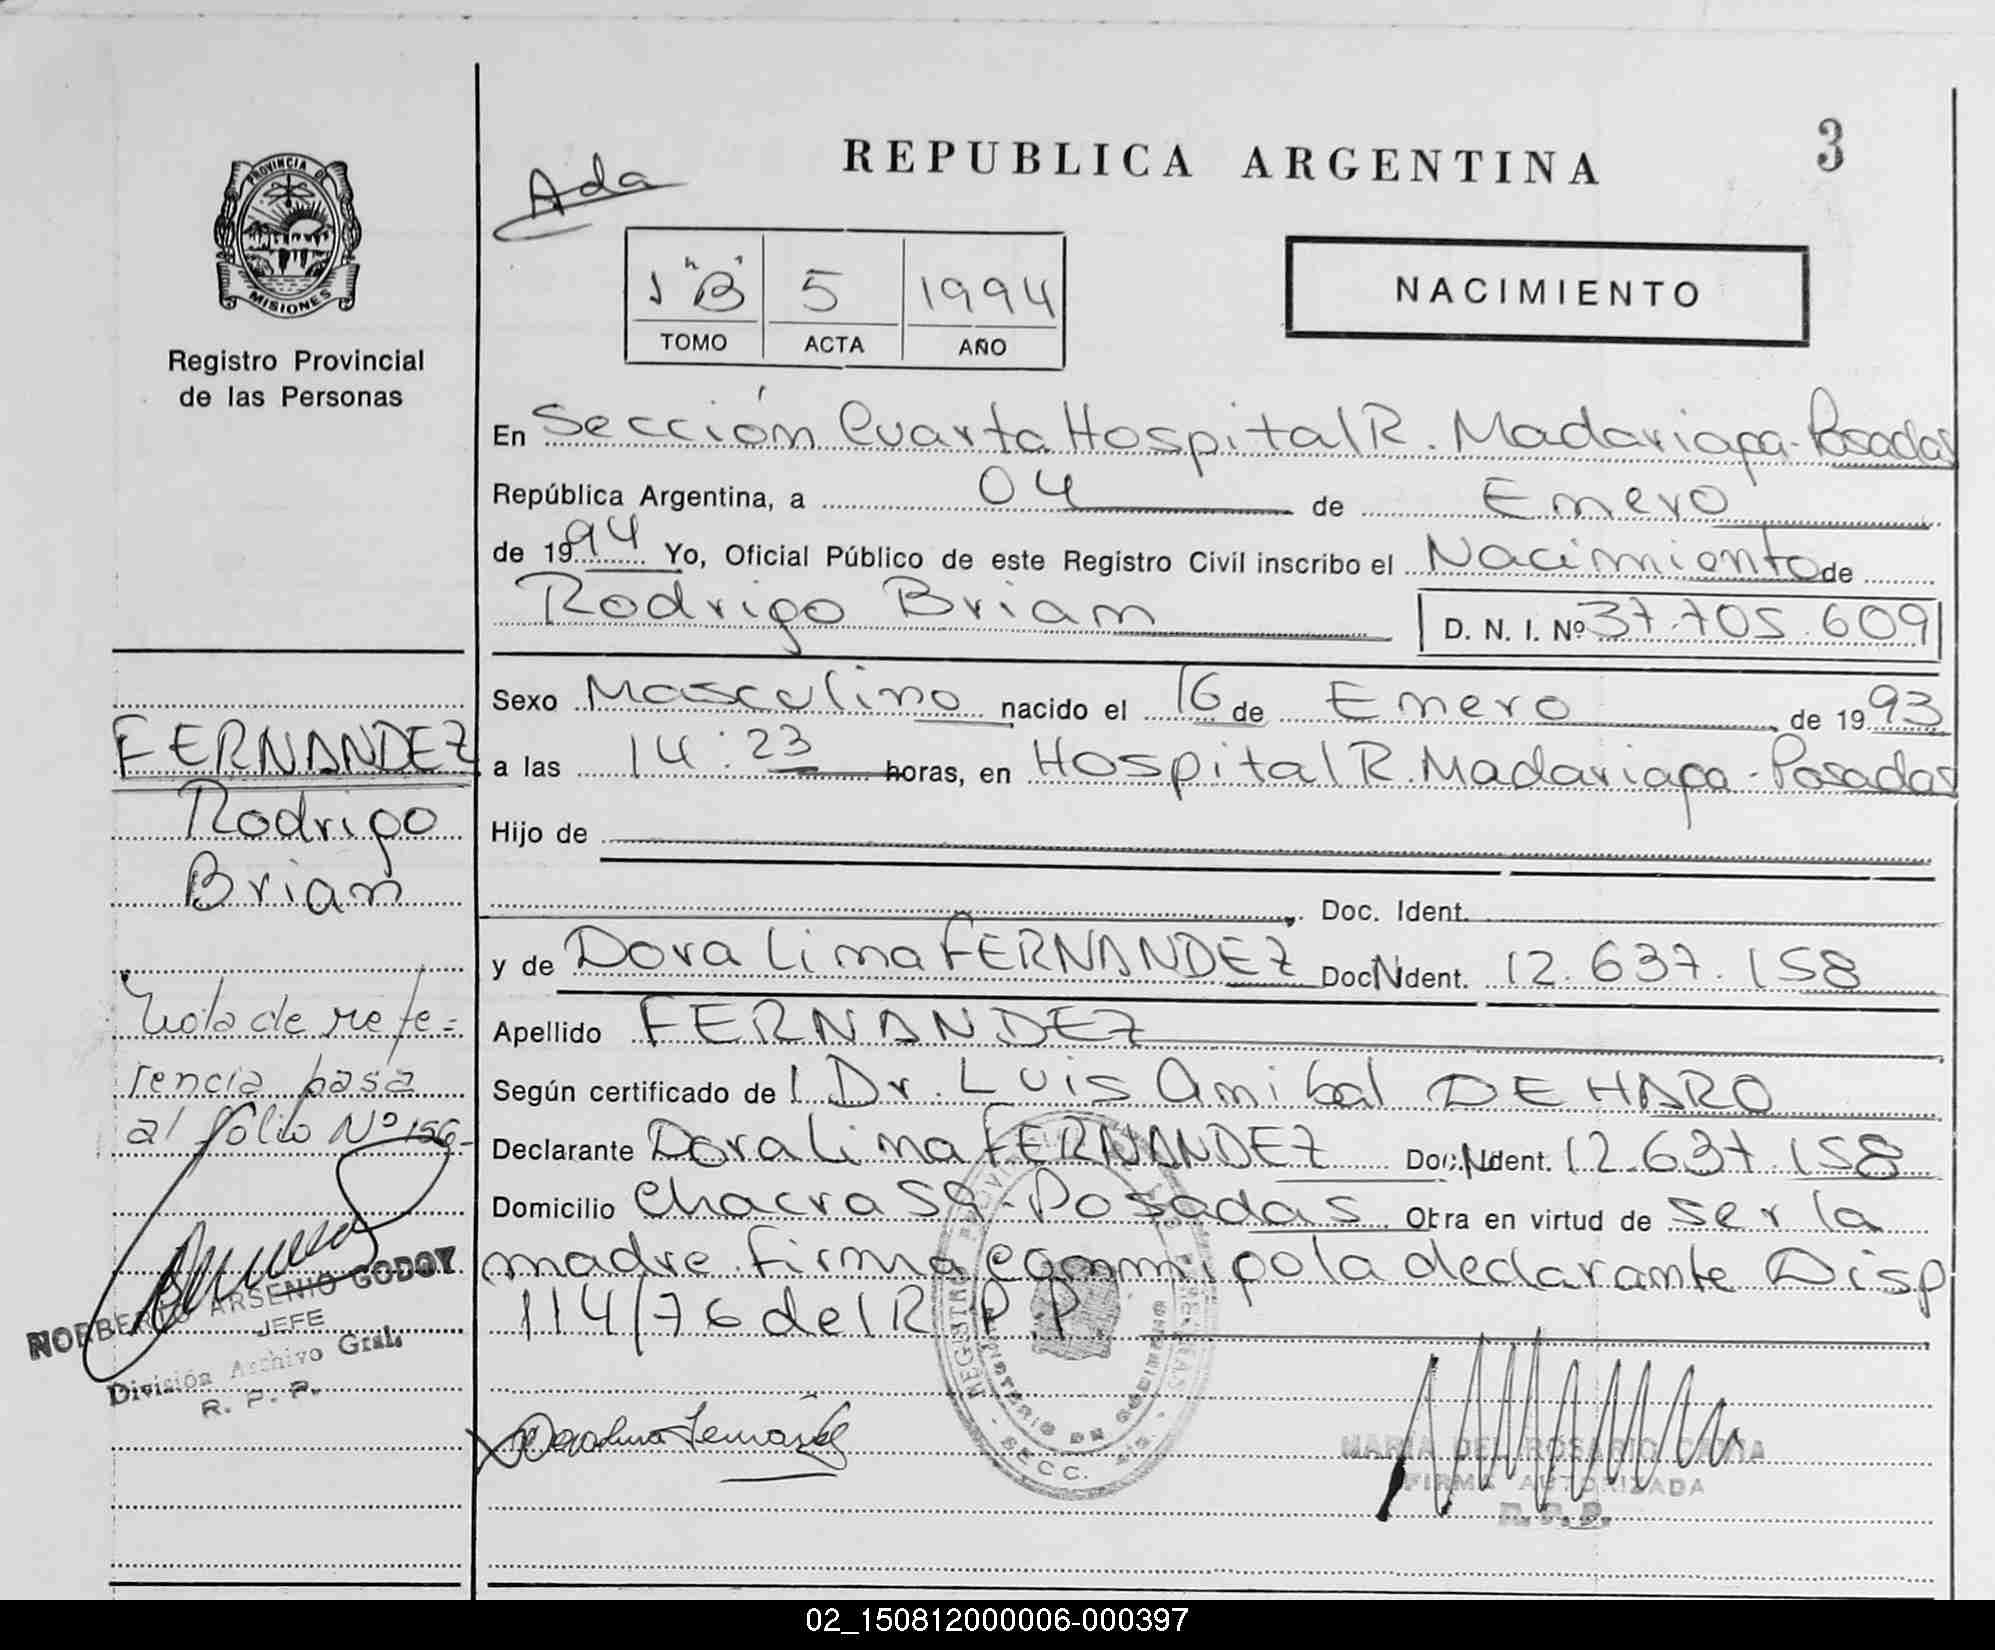 REPUBLICA ARGENTINA
3
Ada
PROVINCIA DE
MISIONES
Registro Provincial
de las Personas
1 "B" 5 1994
TOMO ACTA AÑO
NACIMIENTO
En Sección Cuarta Hospital R. Madariaga - Posadas
República Argentina, a 04 de Enero
de 1994 Yo, Oficial Público de este Registro Civil inscribo el Nacimiento de
Rodrigo Brian D. N. I. Nº 37.705.609
Sexo Masculino nacido el 16 de Enero de 1993
a las 14:23 horas, en Hospital R. Madariaga - Posadas
Hijo de
Doc. Ident.
y de Dora Lina FERNANDEZ Doc. Ident. 12.637.158
Apellido FERNANDEZ
Según certificado de l Dr. Luis Anibal DE HARO
Declarante Dora Lina FERNANDEZ Doc. Ident. 12.637.158
Domicilio Chacra 59 - Posadas Obra en virtud de ser la
madre. Firma conmigo la declarante Disp
114/76 del R P P
FERNANDEZ
Rodrigo
Brian
Nota de refe=
rencia pasa
al folio Nº 156-
NORBERTO ARSENIO GODOY
JEFE
División Archivo Gral.
R. P. P.
REGISTRO
MINISTERIO DE GOBIERNO
SECC.
MARIA DEL ROSARIO
FIRMA AUTORIZADA
R.P.P.
02_150812000006-000397